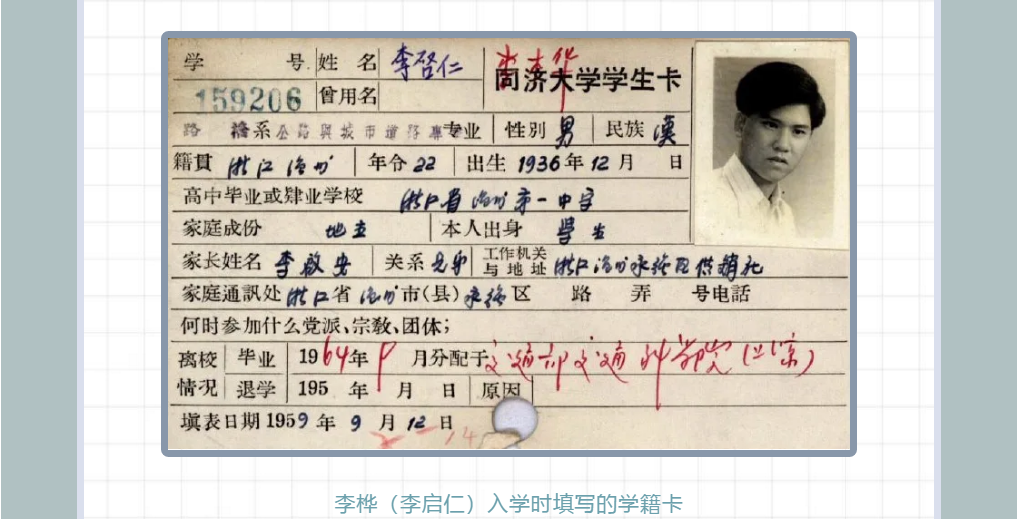 学 号 姓 名 李启仁
同济大学学生卡
159206 曾用名
路 桥系 公路與城市道路專专业 性别 男 民族 漢
籍貫 浙江 年令 22 出生 1936年12月 日
高中毕业或肄业学校 浙江省 第一中学
家庭成份 地主 本人出身 学生
家长姓名 李啟安 关系 兄弟 工作机关与地址 浙江 供銷社
家庭通訊处 浙江省 市(县) 区 路 弄 号电話
何时参加什么党派、宗教、团体;
离校情况 毕业 1964年9月分配于交通部交通科学院(北京)
退学 195 年 月 日 原因
填表日期 1959年9月12日
李桦（李启仁）入学时填写的学籍卡